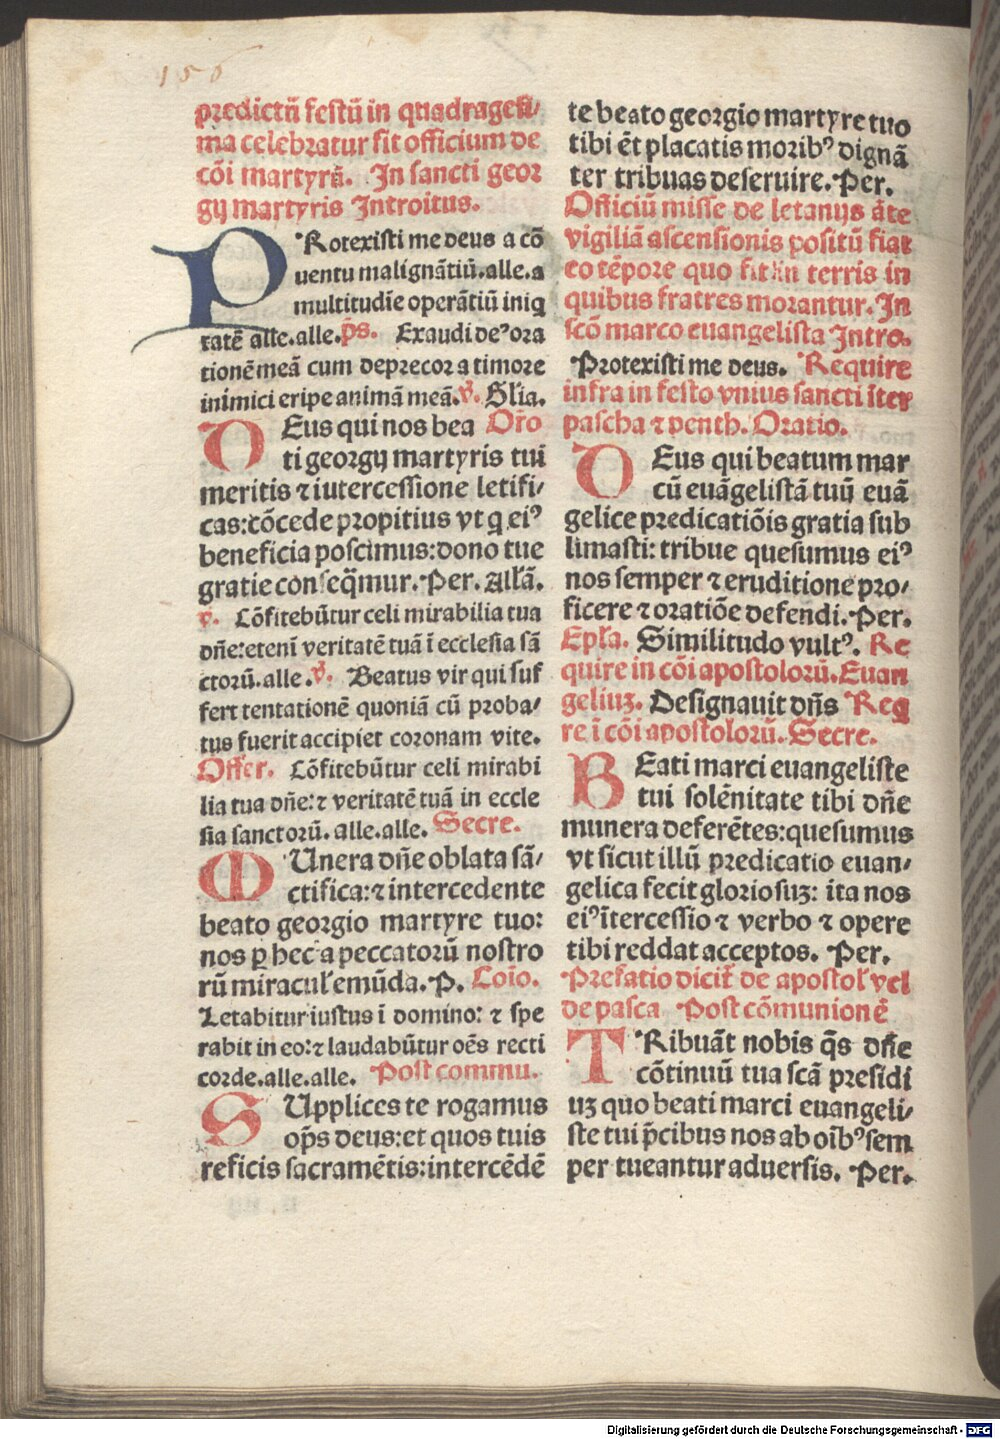 156
predictū festū in quadragesi/
ma celebratur fit officium de
cōi martyrū. In sancti geor
gij martyris Introitus.
PRotexisti me deus a cō
uentu malignātiū.alle.a
multitudīe operātiū iniq
tatē alle.alle.p̄s. Exaudi deꝰ ora
tionē meā cum deprecor a timore
inimici eripe animā meā.v̄. Gl'ia.
DEus qui nos bea Or̄o
ti georgij martyris tui
meritis ⁊ iutercessione letifi/
cas:cōcede propitius vt q eiꝰ
beneficia poscimus:dono tue
gratie conseq̄mur. Per. Allā.
v. Cōfitebūtur celi mirabilia tua
dn̄e:etenī veritatē tuā ī ecclesia sā
ctorū.alle.v̄. Beatus vir qui suf
fert tentationē quoniā cū proba/
tus fuerit accipiet coronam vite.
Offer. Cōfitebūtur celi mirabi
lia tua dn̄e:⁊ veritatē tuā in eccle
sia sanctorū. alle.alle. Secre.
MUnera dn̄e oblata sā/
ctifica:⁊ intercedente
beato georgio martyre tuo:
nos ꝑ hec a peccatorū nostro
rū miracul' emūda. P. Coīo.
Letabitur iustus ī domino: ⁊ spe
rabit in eo:⁊ laudabūtur oēs recti
corde.alle.alle. Post commu.
SUpplices te rogamus
op̄s deus:et quos tuis
reficis sacramētis:intercēdē
te beato georgio martyre tuo
tibi ēt placatis moribꝰ dignā
ter tribuas deseruire. Per.
Officiū misse de letanijs āte
vigiliā ascensionis positū fiat
eo tēpore quo fit in terris in
quibus fratres morantur. In
scō marco euangelista Intro.
Protexisti me deus. Require
infra in festo vnius sancti īter
pascha ⁊ penth. Oratio.
DEus qui beatum mar
cū euāgelistā tuū euā
gelice predicatiōis gratia sub
limasti: tribue quesumus eiꝰ
nos semper ⁊ eruditione pro/
ficere ⁊ oratiōe defendi. Per.
Epl'a. Similitudo vultꝰ. Re
quire in cōi apostolorū. Euan
geliuꝫ. Designauit dn̄s Req
re ī cōi apostolorū. Secre.
BEati marci euangeliste
tui solēnitate tibi dn̄e
munera deferētes:quesumus
vt sicut illū predicatio euan/
gelica fecit gloriosuꝫ: ita nos
eiꝰ ītercessio ⁊ verbo ⁊ opere
tibi reddat acceptos. Per.
Prefatio dicit̄ de apostol' vel
de pasca Post cōmunionē
TRibuāt nobis q̄s dn̄e
cōtinuū tua scā presidi
uꝫ quo beati marci euangeli/
ste tui p̄cibus nos ab oībꝰ sem
per tueantur aduersis. Per.
Digitalisierung gefördert durch die Deutsche Forschungsgemeinschaft - DFG